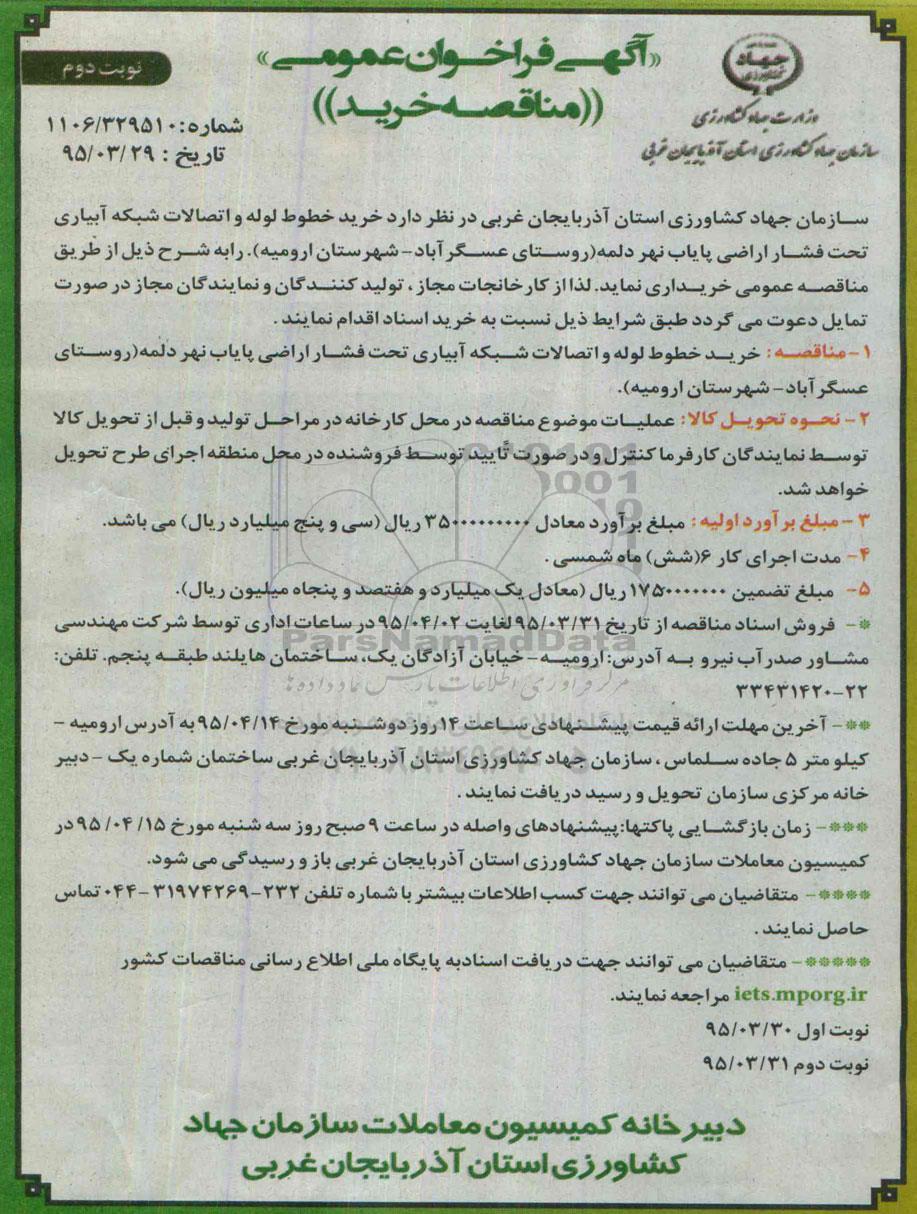 «آگهی فراخوان عمومی»
((مناقصه خرید))
نوبت دوم
جهاد
کشاورزی
وزارت جهاد کشاورزی
سازمان جهاد کشاورزی استان آذربایجان غربی
شماره: ۱۱۰۶/۳۲۹۵۱۰
تاریخ : ۹۵/۰۳/۲۹
سازمان جهاد کشاورزی استان آذربایجان غربی در نظر دارد خرید خطوط لوله و اتصالات شبکه آبیاری
تحت فشار اراضی پایاب نهر دلمه(روستای عسگر آباد- شهرستان ارومیه). رابه شرح ذیل از طریق
مناقصه عمومی خریداری نماید. لذا از کارخانجات مجاز ، تولید کنندگان و نمایندگان مجاز در صورت
تمایل دعوت می گردد طبق شرایط ذیل نسبت به خرید اسناد اقدام نمایند .
۱- مناقصه : خرید خطوط لوله و اتصالات شبکه آبیاری تحت فشار اراضی پایاب نهر دلمه(روستای
عسگر آباد- شهرستان ارومیه).
۲- نحوه تحویل کالا: عملیات موضوع مناقصه در محل کارخانه در مراحل تولید و قبل از تحویل کالا
توسط نمایندگان کارفرما کنترل و در صورت تأیید توسط فروشنده در محل منطقه اجرای طرح تحویل
خواهد شد.
۳- مبلغ برآورد اولیه : مبلغ برآورد معادل ۳۵۰۰۰۰۰۰۰۰۰ ریال (سی و پنج میلیارد ریال) می باشد.
۴- مدت اجرای کار ۶(شش) ماه شمسی .
۵- مبلغ تضمین ۱۷۵۰۰۰۰۰۰۰ریال (معادل یک میلیارد و هفتصد و پنجاه میلیون ریال).
*- فروش اسناد مناقصه از تاریخ ۹۵/۰۳/۳۱ لغایت ۹۵/۰۴/۰۲ در ساعات اداری توسط شرکت مهندسی
مشاور صدرآب نیرو به آدرس: ارومیه – خیابان آزادگان یک، ساختمان هایلند طبقه پنجم. تلفن:
۳۳۴۳۱۴۲۰-۲۲
**- آخرین مهلت ارائه قیمت پیشنهادی ساعت ۱۴ روز دوشنبه مورخ ۹۵/۰۴/۱۴ به آدرس ارومیه –
کیلو متر ۵ جاده سلماس ، سازمان جهاد کشاورزی استان آذربایجان غربی ساختمان شماره یک - دبیر
خانه مرکزی سازمان تحویل و رسید دریافت نمایند .
***- زمان بازگشایی پاکتها: پیشنهادهای واصله در ساعت ۹ صبح روز سه شنبه مورخ ۹۵/۰۴/۱۵ در
کمیسیون معاملات سازمان جهاد کشاورزی استان آذربایجان غربی باز و رسیدگی می شود.
****- متقاضیان می توانند جهت کسب اطلاعات بیشتر با شماره تلفن ۲۳۲-۳۱۹۷۴۲۶۹-۰۴۴ تماس
حاصل نمایند .
*****- متقاضیان می توانند جهت دریافت اسنادبه پایگاه ملی اطلاع رسانی مناقصات کشور
iets.mporg.ir مراجعه نمایند.
نوبت اول ۹۵/۰۳/۳۰
نوبت دوم ۹۵/۰۳/۳۱
دبیر خانه کمیسیون معاملات سازمان جهاد
کشاورزی استان آذربایجان غربی
ParsNamadData
مرکز فرآوری اطلاعات پارس نماد داده ها